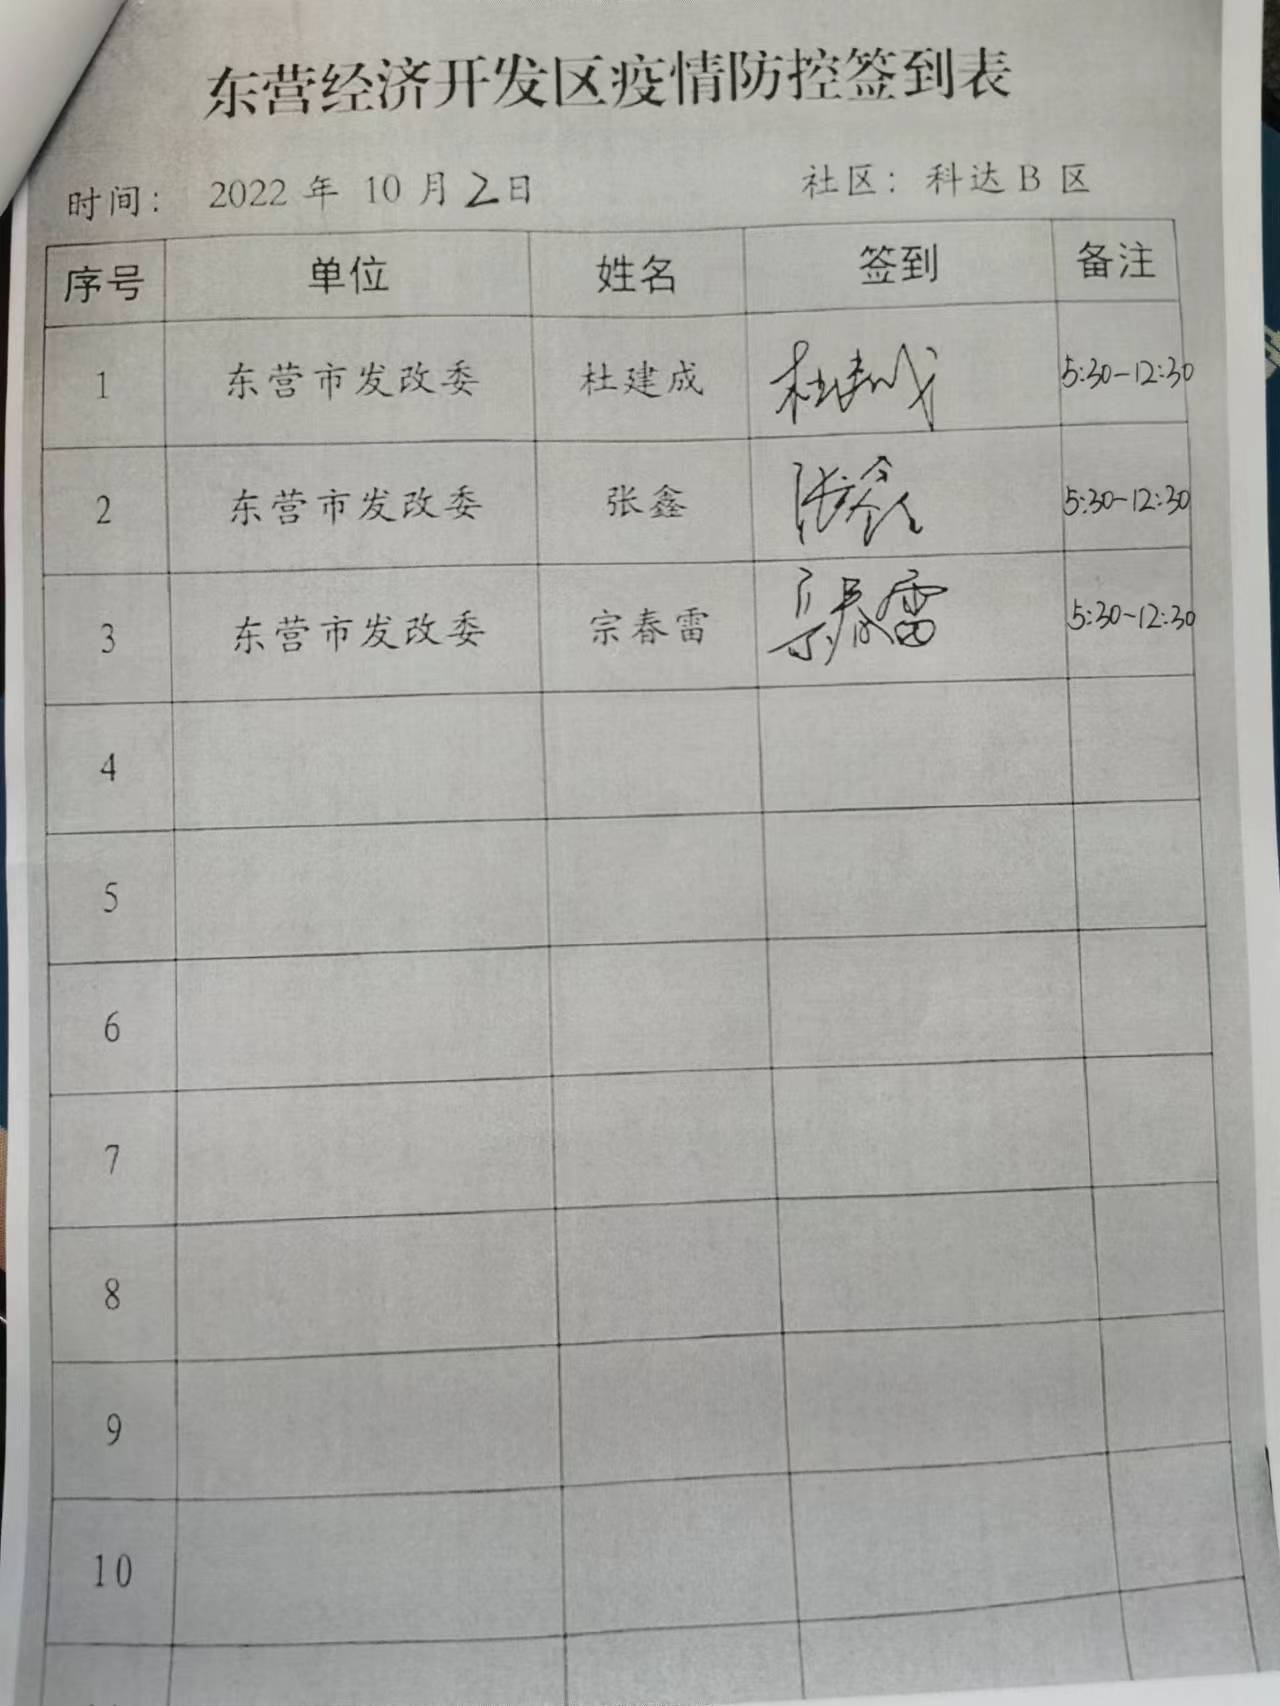 东营经济开发区疫情防控签到表
时间： 2022 年 10 月 2 日 社区：科达 B 区
序号 单位 姓名 签到 备注
1 东营市发改委 杜建成 杜建成 5:30-12:30
2 东营市发改委 张鑫 张鑫 5:30-12:30
3 东营市发改委 宗春雷 宗春雷 5:30-12:30
4
5
6
7
8
9
10